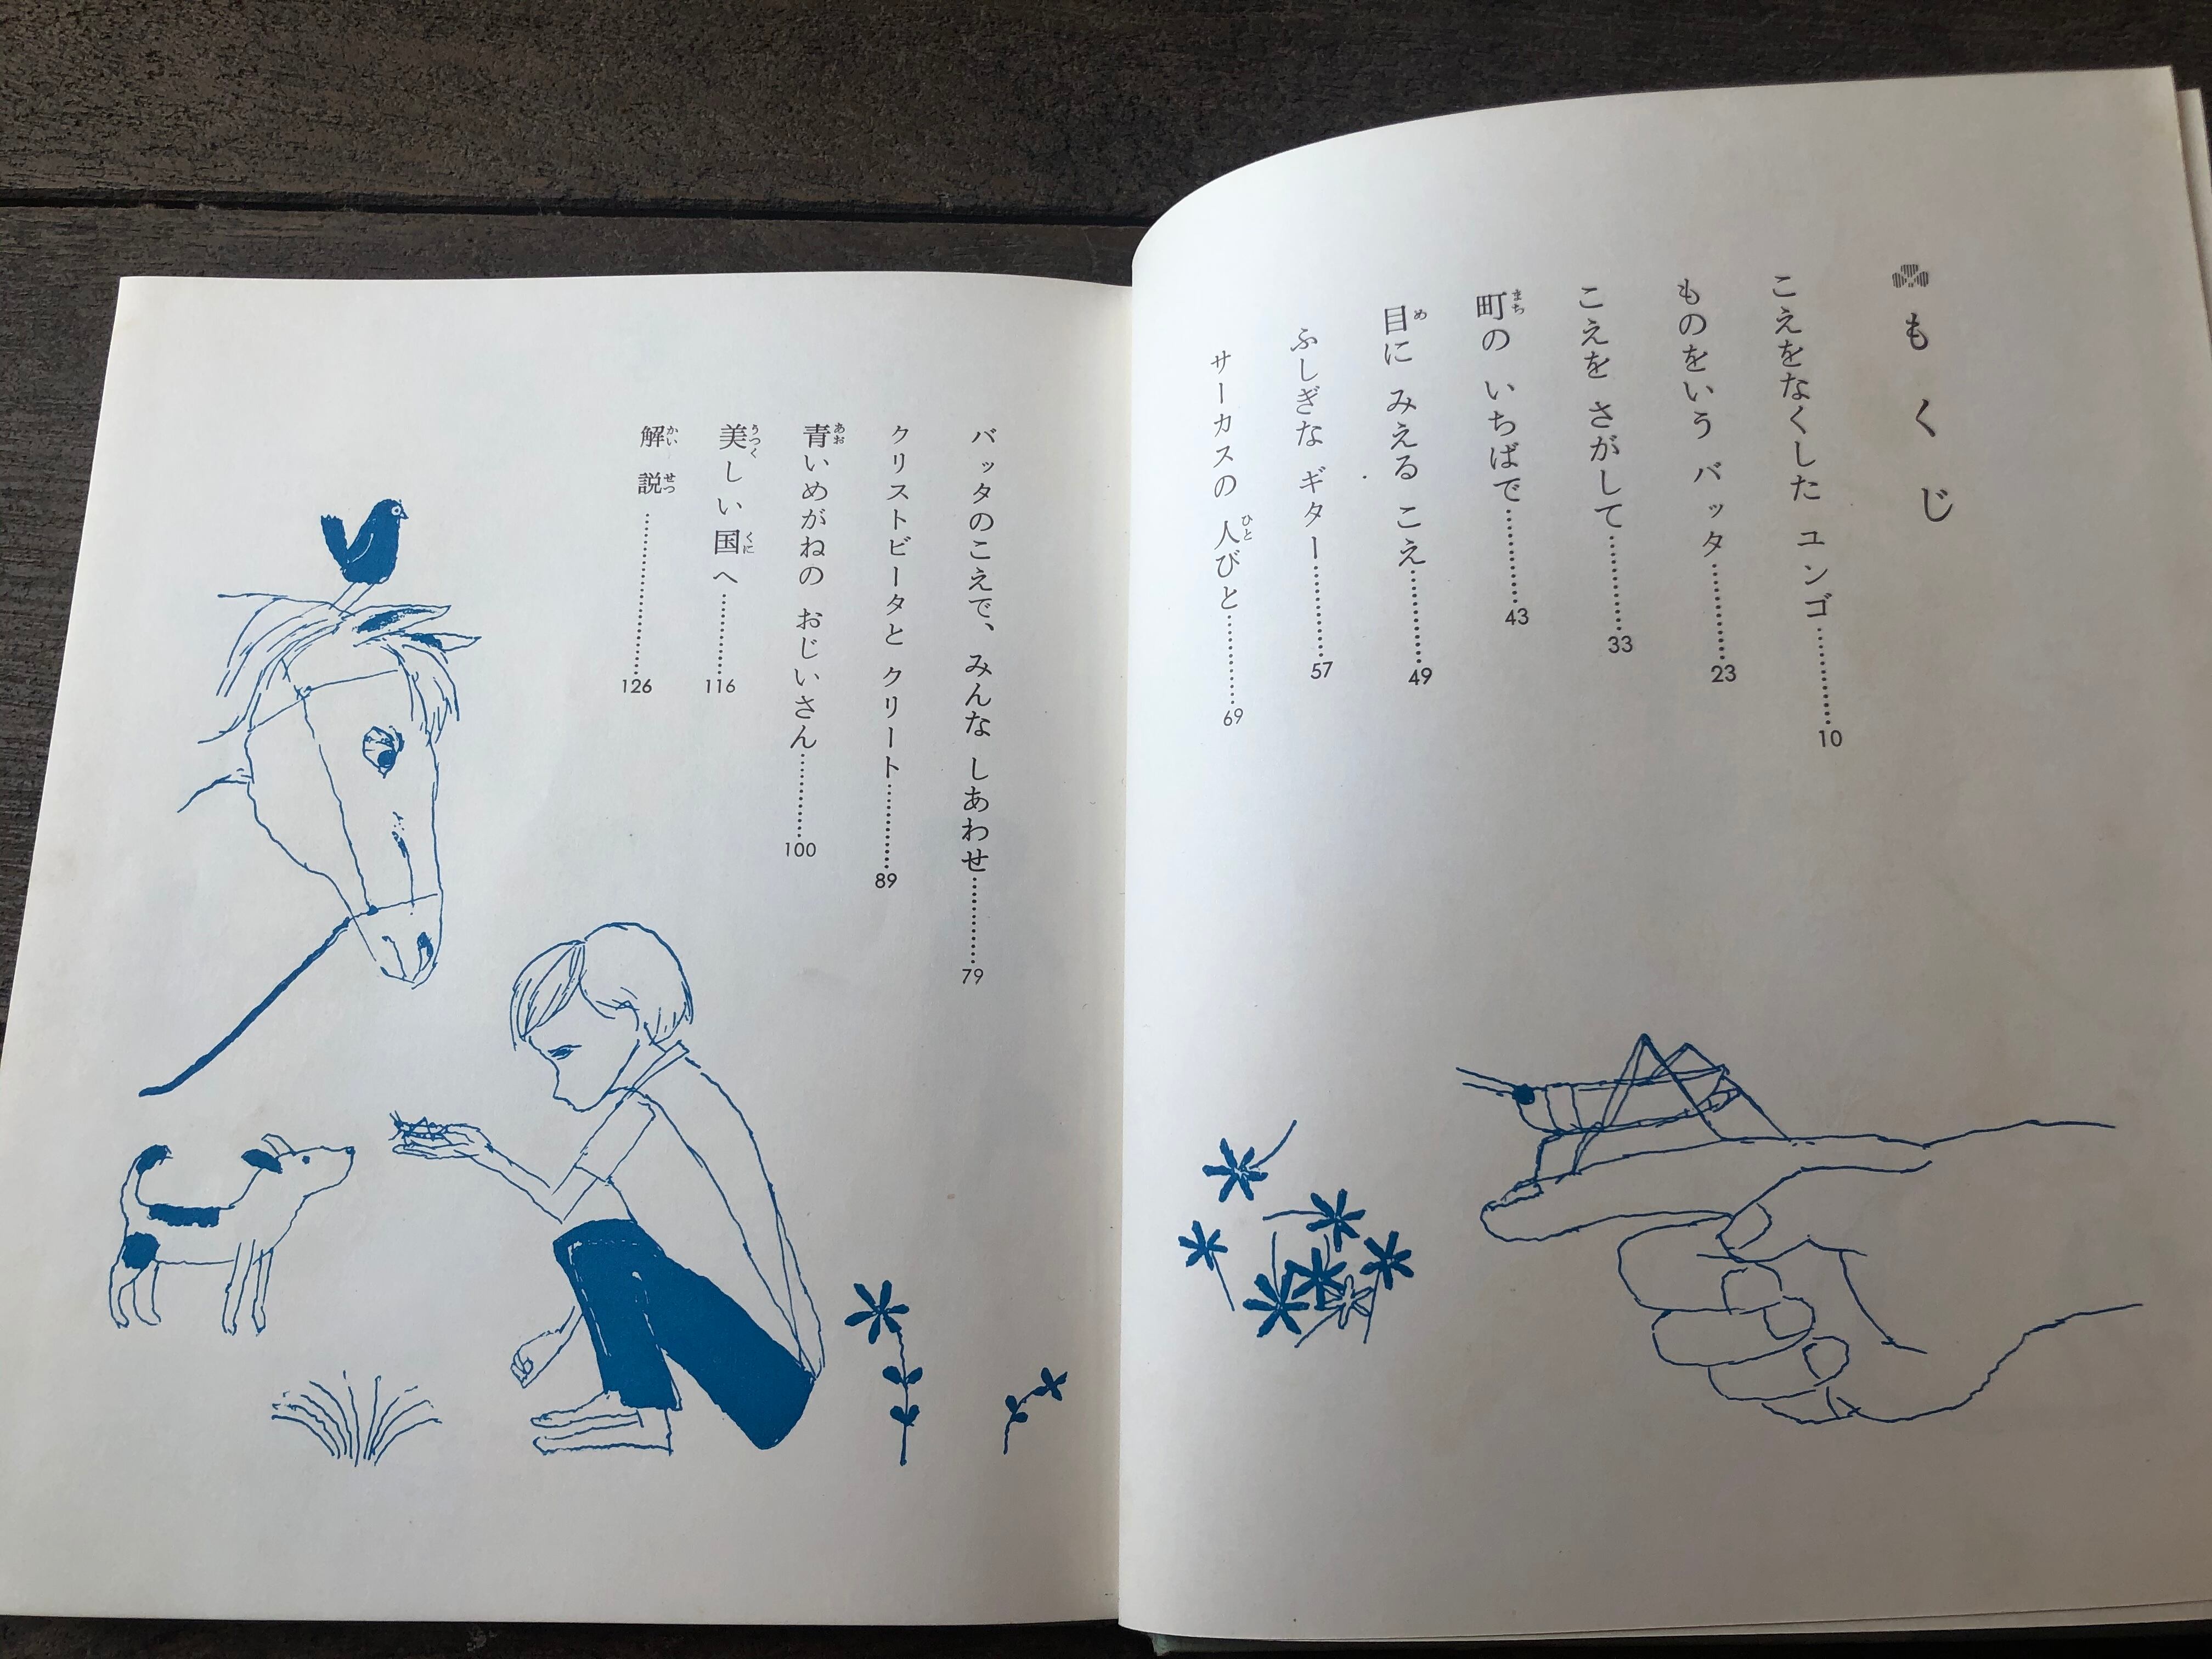 もくじ
こえをなくした ユンゴ…………10
ものをいう バッタ…………23
こえを さがして…………33
町の いちばで…………43
目に みえる こえ…………49
ふしぎな ギター…………57
サーカスの 人びと…………69
バッタのこえで、みんな しあわせ…………79
クリストビータと クリート…………89
青いめがねの おじいさん…………100
美しい 国へ…………116
解説…………126